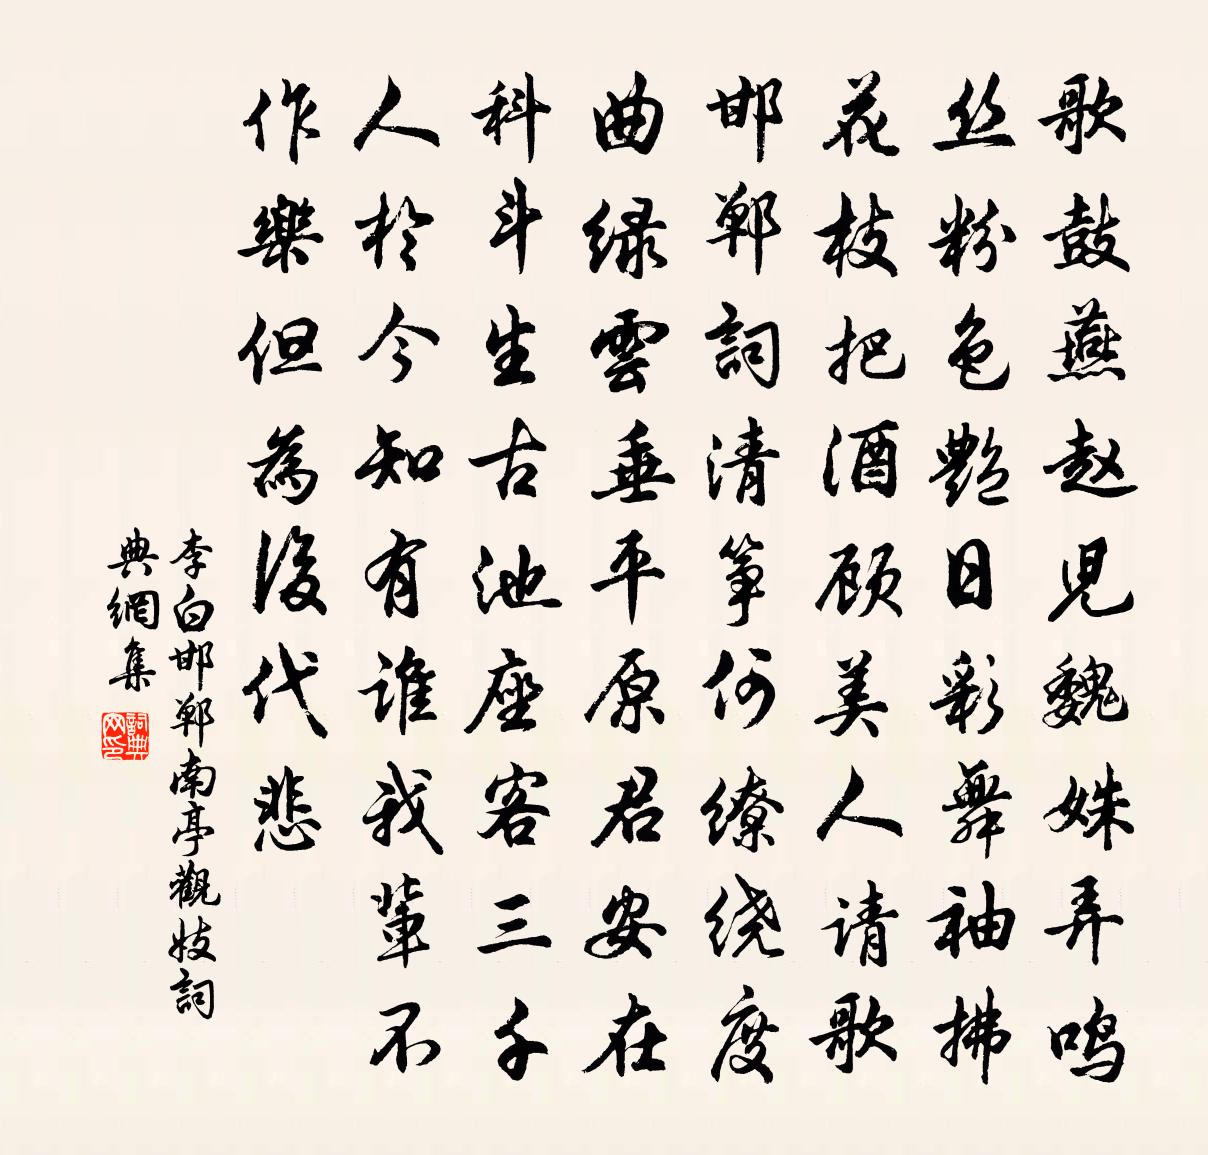 歌鼓燕赵児魏姝弄鸣
丝粉色艶日彩舞袖拂
花枝把酒顾美人请歌
邯郸詞清筝何缭绕度
曲绿雲垂平原君安在
科斗生古池座客三千
人於今知有谁我輩不
作樂但為後代悲
李白邯郸南亭觀妓詞
典網集
詞典
网印